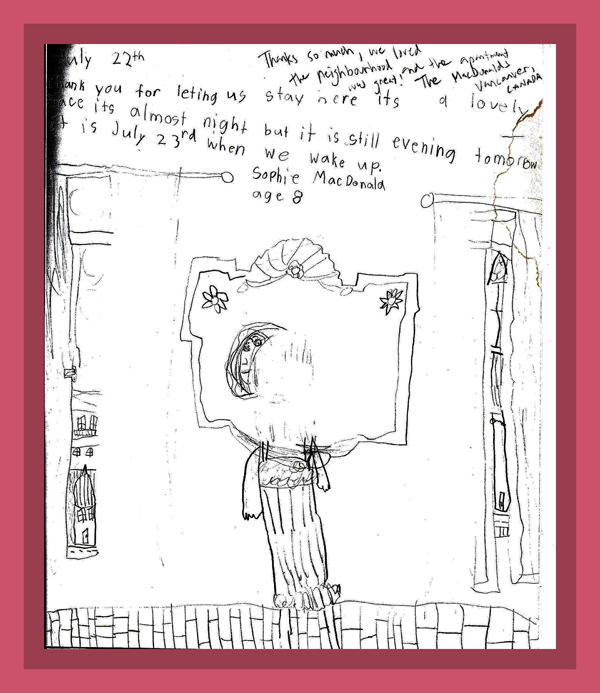 uly 22th
Thanks so much, we loved
the neighbourhood, and the apartment
was great! The MacDonalds
Vancouver,
CANADA
ank you for leting us stay here its a lovely
ace its almost night but it is still evening tomorow
t is July 23rd when we wake up.
Sophie MacDonald
age 8